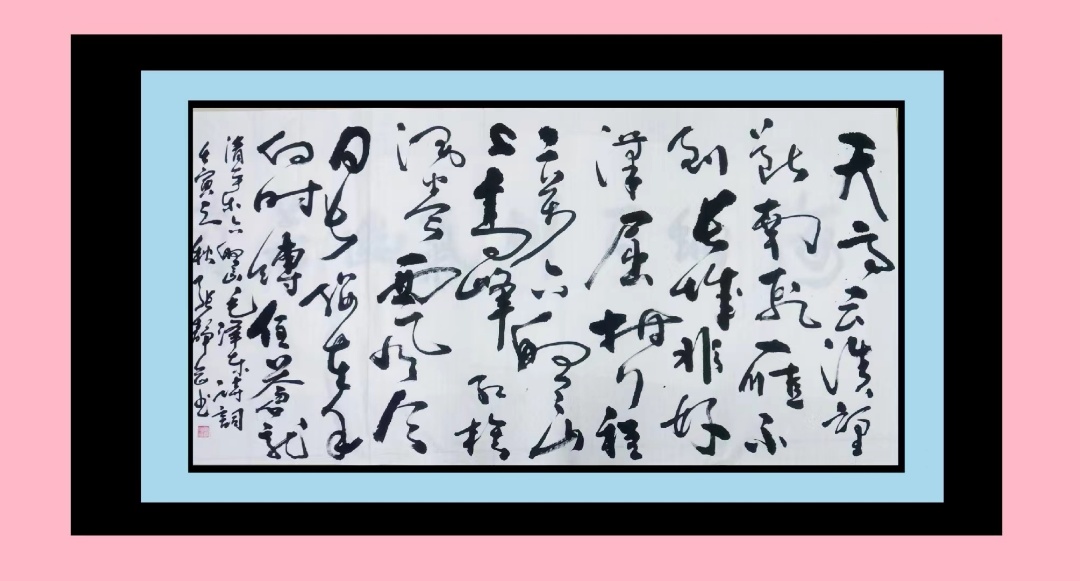 天高云淡望
断南飛雁不
到长城非好
漢屈指行程
二万六盘山
上高峰红旗
漫卷西风今
日长缨在手
何时縛住蒼龙
清平乐六盘山毛泽东诗詞
壬寅之秋 书